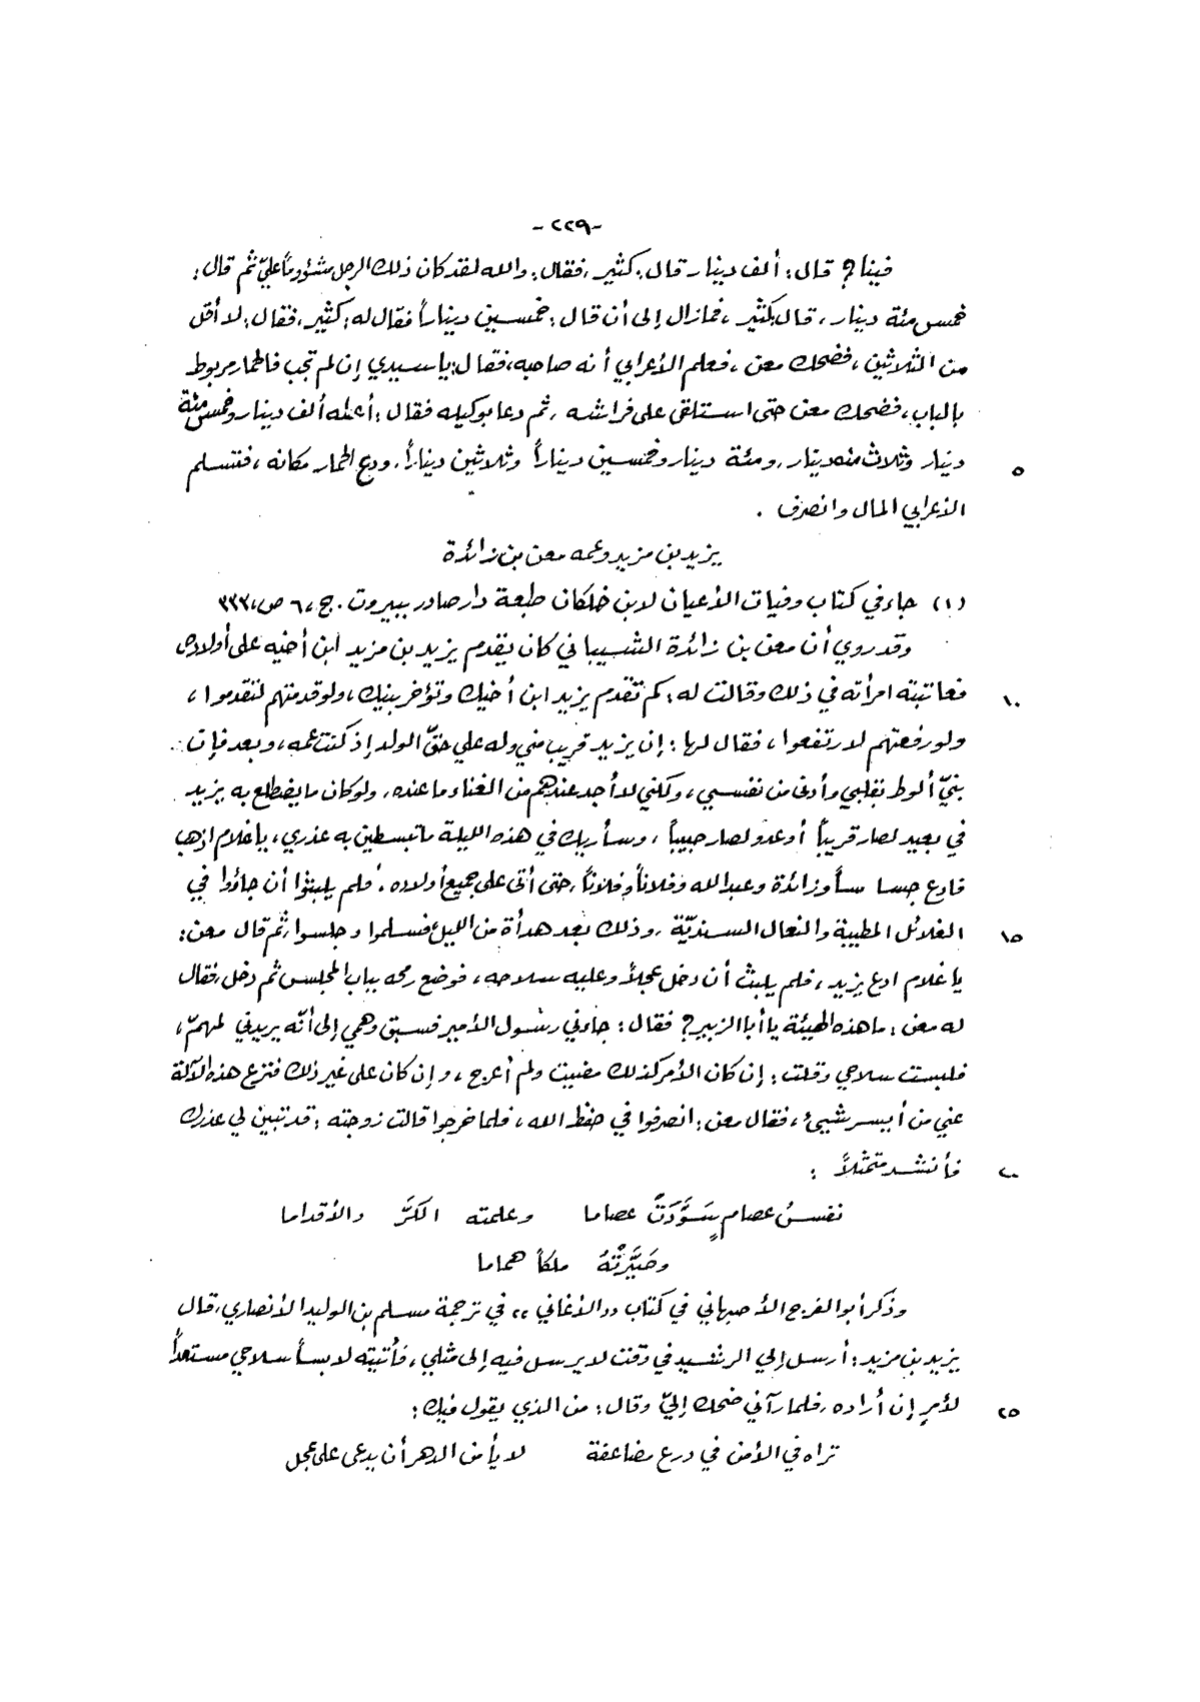 -٢٢٩-
فينا؟ قال: ألف دينار قال: كثير، فقال: والله لقد كان ذلك الرجل مشؤوماً عليّ ثم قال:
خمس مئة دينار، قال كثير، فما زال إلى أن قال: خمسين ديناراً فقال له: كثير، فقال: لا أقل
من الثلاثين، فضحك معن، فعلم الأعرابي أنه صاحبه، فقال: يا سيدي إن لم تجب فالحمار مربوط
بالباب، فضحك معن حتى استلقى على فراشه، ثم دعا بوكيله فقال: أعطه ألف دينار وخمس مئة
دينار وثلاث مئة دينار، ومئة دينار وخمسين ديناراً وثلاثين ديناراً، ودع الحمار مكانه، فتسلم
٥
الأعرابي المال وانصرف .
يزيد بن مزيد وعمه معن بن زائدة
(١) جاء في كتاب وفيات الأعيان لابن خلكان طبعة دار صادر ببيروت. ج، ٦ ص، ٣٣٢
وقد روي أن معن بن زائدة الشيباني كان يقدم يزيد بن مزيد ابن أخيه على أولاده
فعاتبته امرأته في ذلك وقالت له: كم تقدم يزيد ابن أخيك وتؤخر بنيك، ولو قدمتهم لتقدموا،
١٠
ولو رفعتهم لارتفعوا، فقال لها: إن يزيد قريب مني وله علي حقّ الولد إذ كنت عمه، وبعد فإن
بنيّ ألوط بقلبي وأدنى من نفسي، ولكني لا أجد عندهم من الغناء ما عنده، ولو كان ما يضطلع به يزيد
في بعيد لصار قريباً أو عدو لصار حبيباً، وسأريك في هذه الليلة ما تبسطين به عذري، يا غلام اذهب
فادع جساساً وزائدة وعبد الله وفلاناً وفلاناً، حتى أتى على جميع أولاده، فلم يلبثوا أن جاؤوا في
الغلائل المطيبة والنعال السنديّة، وذلك بعد هدأة من الليل فسلموا وجلسوا، ثم قال معن:
١٥
يا غلام ادع يزيد، فلم يلبث أن دخل عجلاً وعليه سلاحه، فوضع رمحه بباب المجلس ثم دخل، فقال
له معن: ما هذه الهيئة يا أبا الزبير؟ فقال: جاءني رسول الأمير فسبق وهمي إلى أنّه يريدني لمهمّ،
فلبست سلاحي وقلت: إن كان الأمر كذلك مضيت ولم أعرج، وإن كان على غير ذلك فنزع هذه الآلة
عني من أيسر شيئ، فقال معن: انصرفوا في حفظ الله، فلما خرجوا قالت زوجته: قد تبين لي عذرك
فأنشد متمثلاً :
٢٠
نفسُ عصامٍ سَوَّدَتْ عصاما     وعلمته الكَرَّ والأقداما
وصَيَّرَتْهُ ملكاً هماما
وذكر أبو الفرج الأصبهاني في كتاب ‹‹الأغاني›› في ترجمة مسلم بن الوليد الأنصاري، قال
يزيد بن مزيد: أرسل إلي الرشيد في وقت لا يرسل فيه إلى مثلي، فأتيته لابساً سلاحي مستعداً
لأمرٍ إن أراده، فلما رآني ضحك إليّ وقال: من الذي يقول فيك:
٢٥
تراه في الأمن في درع مضاعفة     لا يأمن الدهر أن يدعى على عجل